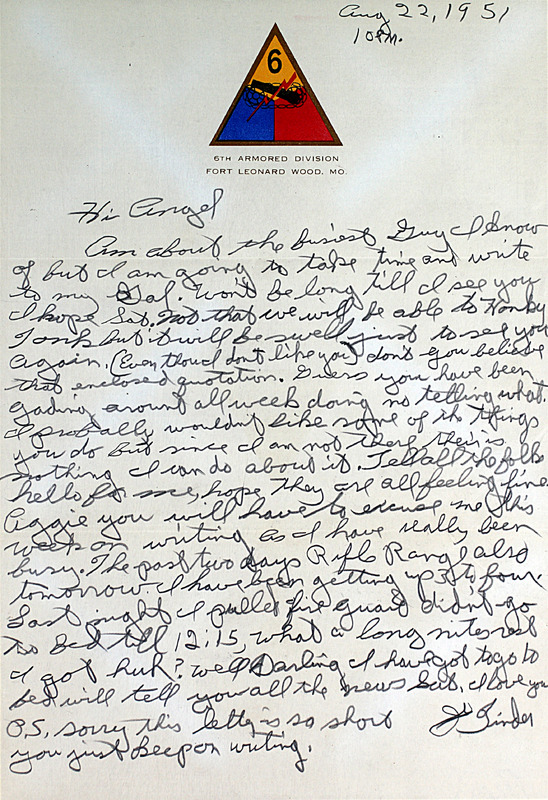 Aug 22, 1951
10 P.M.
6
6TH ARMORED DIVISION
FORT LEONARD WOOD, MO.
Hi Angel
Am about the busiest Guy I know
of but I am going to take time and write
to my Gal. Won't be long till I see you
I hope Sat. Not that we will be able to Honky
Tonk but it will be swell just to see you
again. (Even thou I don't like you) don't you believe
that enclosed quotation. Guess you have been
gading around all week doing no telling what.
I probally wouldn't like some of the things
you do but since I am not there their is
nothing I can do about it. Tell all the folks
hello for me, hope they are all feeling fine.
Aggie you will have to excuse me this
week on writing as I have really been
busy. The past two days Rifle Range also
tomorrow. I have been getting up 3 to four.
Last night I pulled fire guard didn't go
to bed till 12:15, what a long nites rest
I got huh? Well Darling I have got to go to
bed will tell you all the news Sat, I love you
P.S. sorry this letter is so short
you just keep on writing.